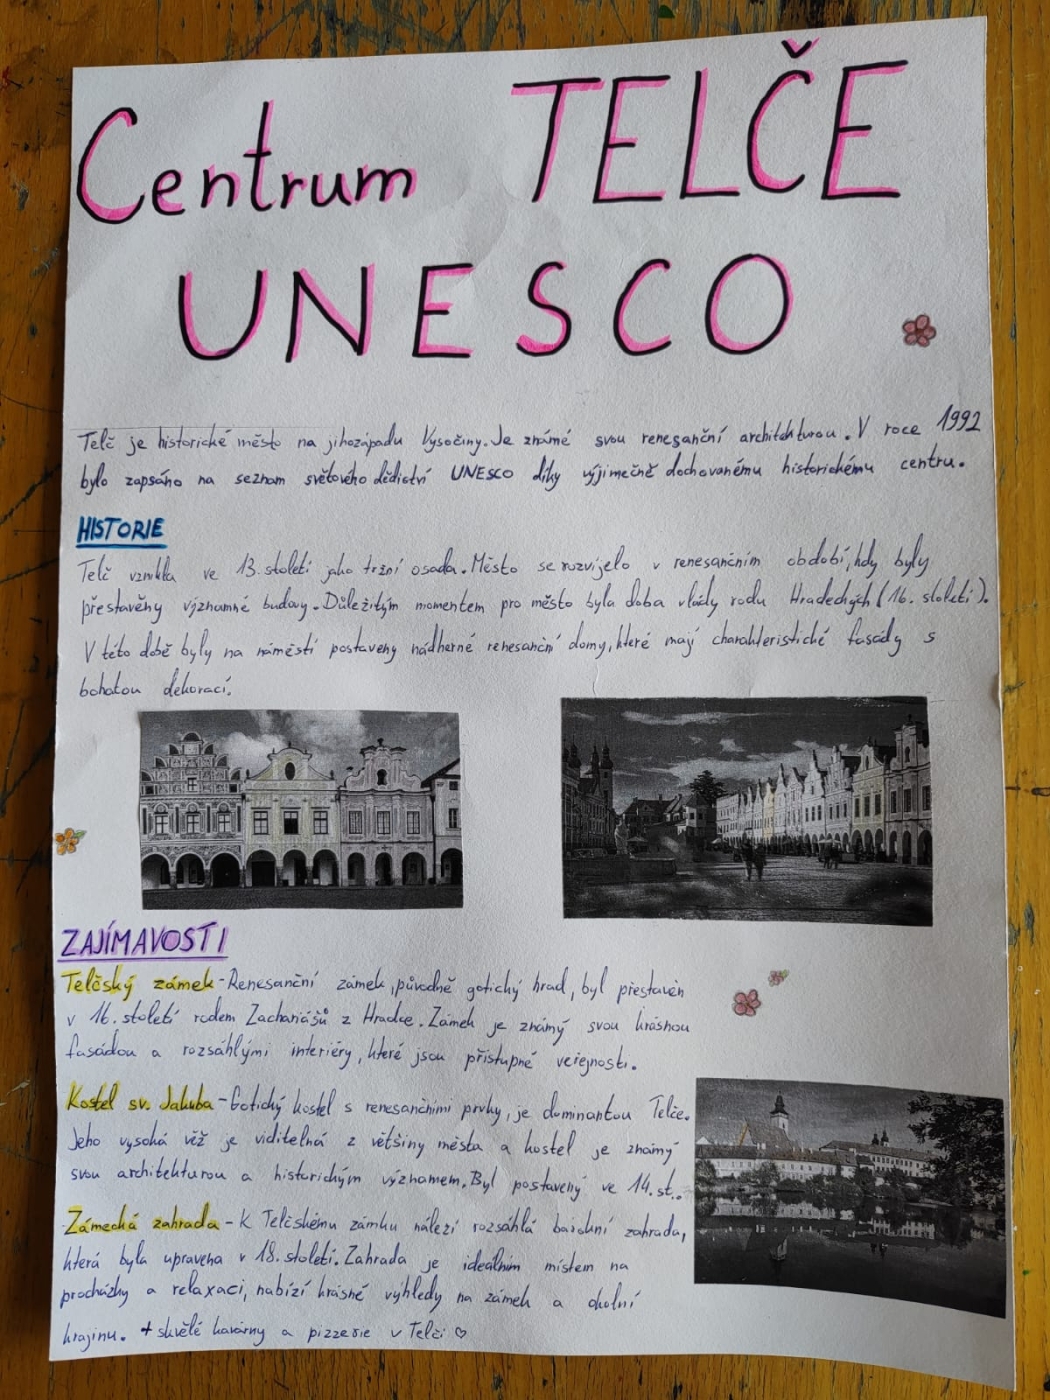 Centrum TELČE
UNESCO
Telč je historické město na jihozápadu Vysočiny. Je známé svou renesanční architekturou. V roce 1992
bylo zapsáno na seznam světového dědictví UNESCO díky výjimečně dochovanému historickému centru.
HISTORIE
Telč vznikla ve 13. století jako tržní osada. Město se rozvijelo v renesančním období, kdy byly
přestavěny významné budovy. Důležitým momentem pro město byla doba vlády rodu Hradeckých (16. století).
V této době byly na náměstí postaveny nádherné renesanční domy, které mají charakteristické fasády s
bohatou dekorací.
ZAJÍMAVOSTI
Telčský zámek - Renesanční zámek, původně gotický hrad, byl přestavěn
v 16. století rodem Zachariášů z Hradce. Zámek je známý svou krásnou
fasádou a rozsáhlými interiéry, které jsou přístupné veřejnosti.
Kostel sv. Jakuba - Gotický kostel s renesančními prvky, je dominantou Telče.
Jeho vysoká věž je viditelná z většiny města a kostel je známý
svou architekturou a historickým významem. Byl postavený ve 14. st..
Zámecká zahrada - K Telčskému zámku náleží rozsáhlá barokní zahrada,
která byla upravena v 18. století. Zahrada je ideálním místem na
procházky a relaxaci, nabízí krásné výhledy na zámek a okolní
krajinu. + skvělé kavárny a pizzerie v Telči ♡